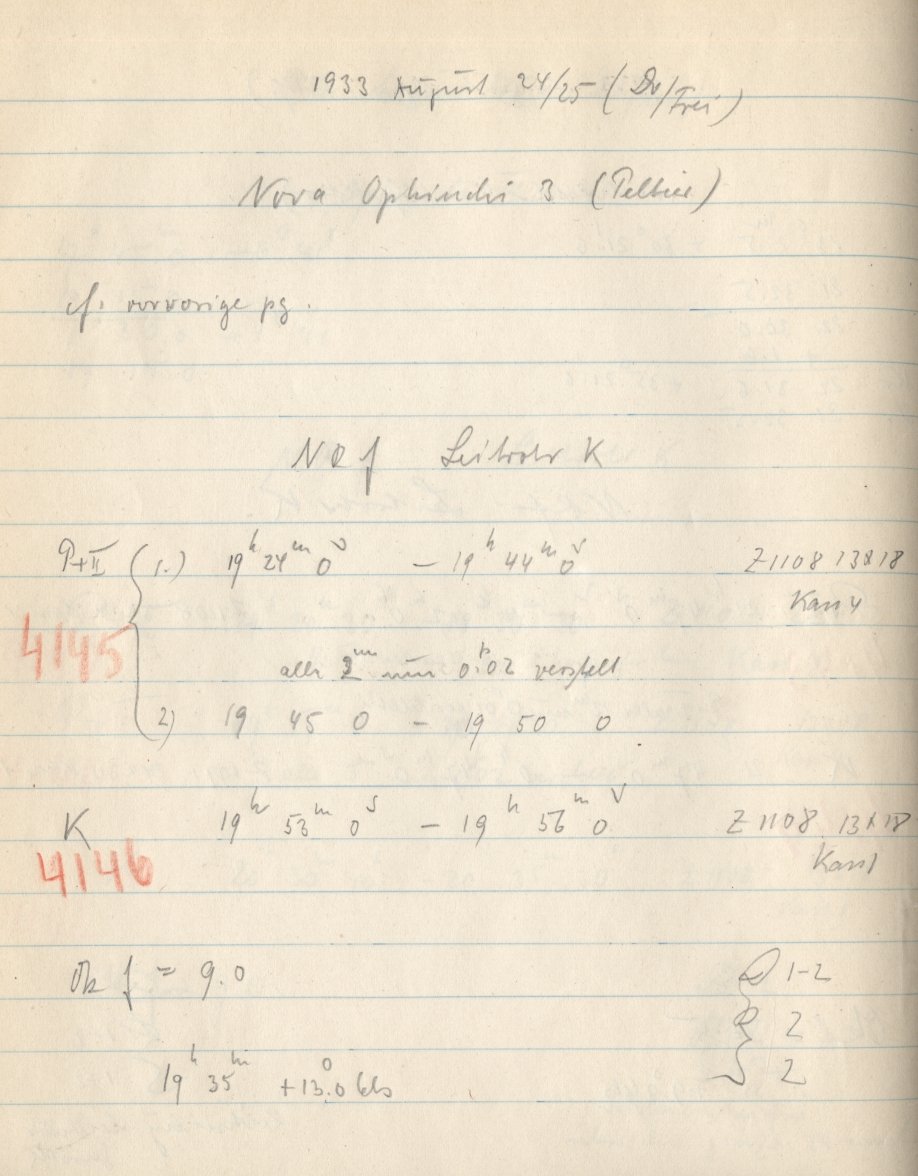 1933 August 24/25 (Dr/Frei)
Nova Ophiuchi 3 (Peltier)
cf. vorvorige pg.
NOf Leitrohr K
P+II { 1.) 19ʰ 24ᵐ 0ˢ — 19ʰ 44ᵐ 0ˢ Z1108 13x18
Kass 4
4145
alle 2ᵐ um 0.02 verstellt
2) 19 45 0 — 19 50 0
K 19ʰ 53ᵐ 0ˢ — 19ʰ 56ᵐ 0ˢ Z1108 13x18
Kass 1
4146
Ok f = 9.0
1-2
2
2
19ʰ 35ᵐ +13.0